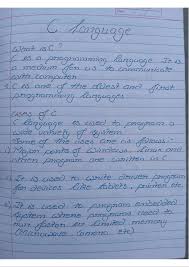 C language
What is C?
C is a programming language. It is
medium for us to communicate
with computer.
C is one of the oldest and first
programming languages.
Uses of C
C language is used to program a
wide variety of system.
Some of the uses are as follows:-
Major parts of Windows, Linux and
other program are written in C
It is used to write driver program
for devices like tablets, printer etc.
It is used to program embedded
system where programs need to
run faster in limited memory